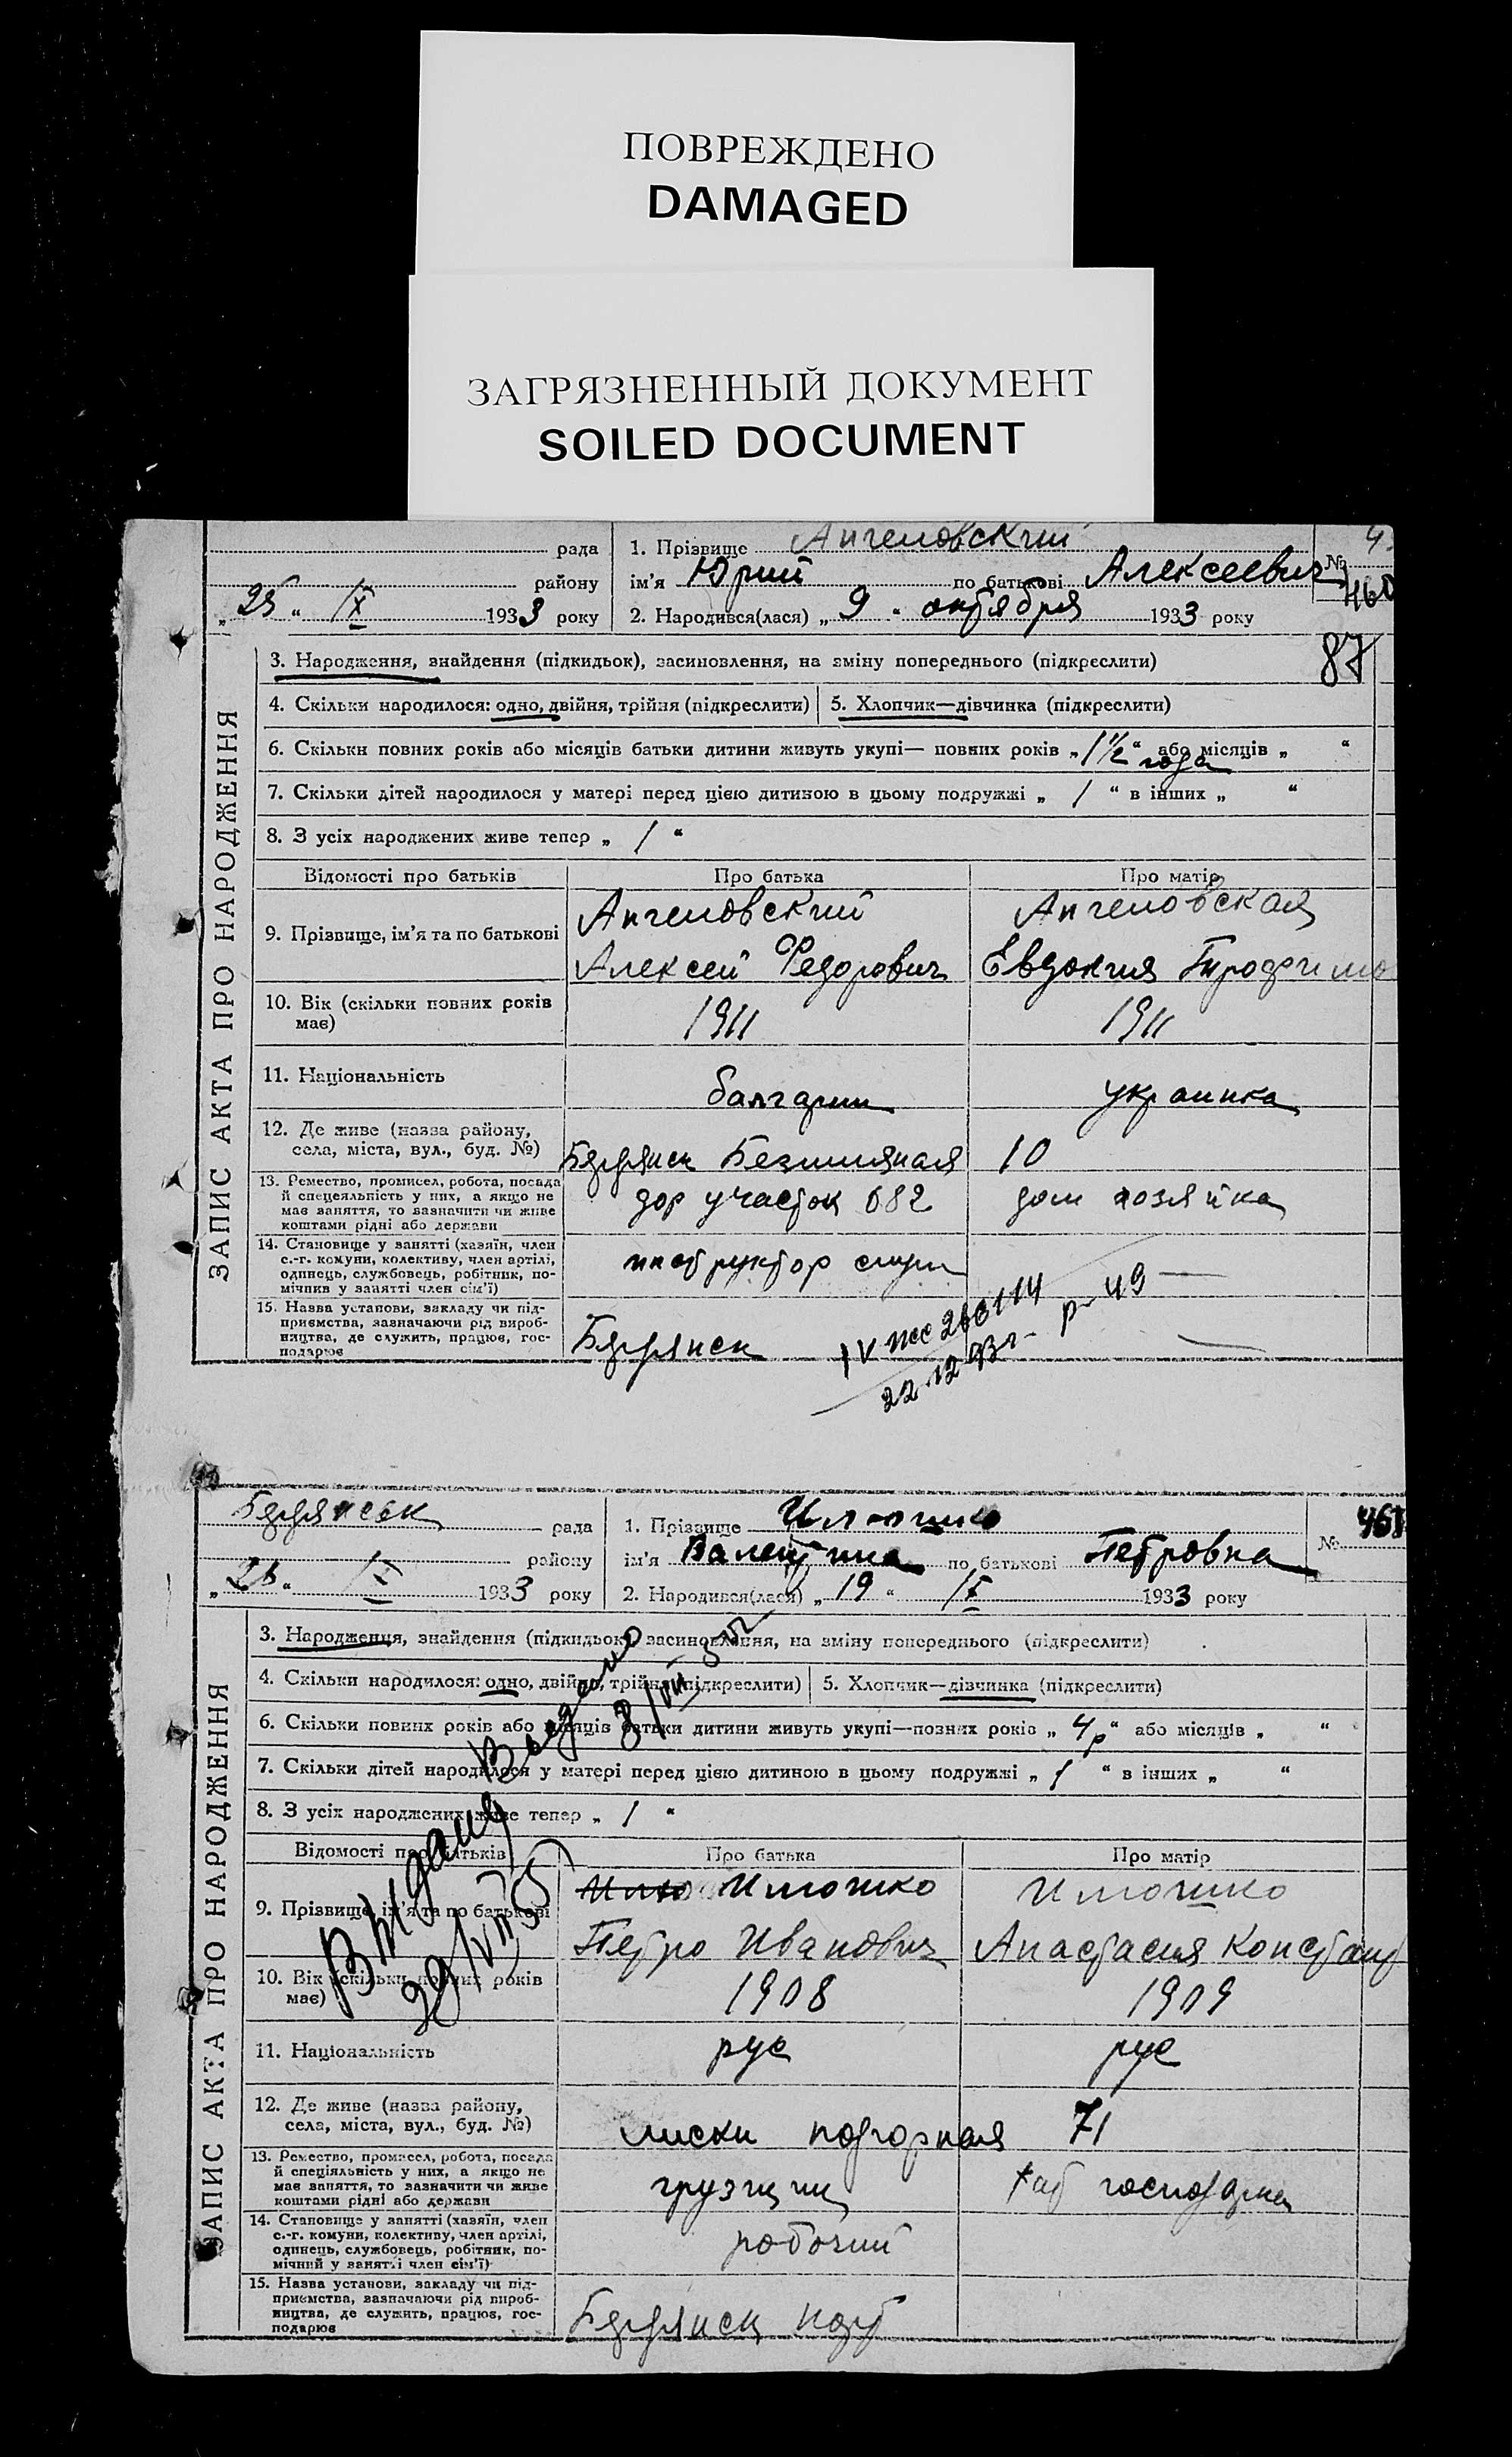 ПОВРЕЖДЕНО
DAMAGED
ЗАГРЯЗНЕННЫЙ ДОКУМЕНТ
SOILED DOCUMENT
ЗАПИС АКТА ПРО НАРОДЖЕННЯ
рада
району
„ 25 “ IX 1933 року
1. Прізвище Ангеловский
ім'я Юрий по батькові Алексеевич
2. Народився(лася) „ 9 “ октября 1933 року
№ 460
87
3. Народження, знайдення (підкидьок), засиновлення, на зміну попереднього (підкреслити)
4. Скільки народилося: одно, двійня, трійня (підкреслити)
5. Хлопчик—дівчинка (підкреслити)
6. Скільки повних років або місяців батьки дитини живуть укупі— повних років „ 1 1/2 “ або місяців „ “
года
7. Скільки дітей народилося у матері перед цією дитиною в цьому подружжі „ 1 “ в інших „ “
8. З усіх народжених живе тепер „ 1 “
Відомості про батьків Про батька Про матір
9. Прізвище, ім'я та по батькові
Ангеловский
Алексей Федорович
Ангеловская
Евдокия Трофимо
10. Вік (скільки повних років
має)
1911 1911
11. Національність
болгарин украинка
12. Де живе (назва району,
села, міста, вул., буд. №)
Бердянск 10
13. Ремество, промисел, робота, посада
й спецеяльність у них, а якщо не
має заняття, то зазначити чи живе
коштами рідні або держави
дор участок 682 дом хозяйка
14. Становище у занятті (хазяїн, член
с.-г. комуни, колективу, член артілі,
одинець, службовець, робітник, по-
мічник у занятті член сім'ї)
инструктор
15. Назва установи, закладу чи під-
приємства, зазначаючи рід вироб-
ництва, де служить, працює, гос-
подарює
Бердянск
22.12.93г.
ЗАПИС АКТА ПРО НАРОДЖЕННЯ
Бердянськ рада
району
1933 року
1. Прізвище Илюшко
ім'я Валентина по батькові Петровна
2. Народився(лася) „ 19 “ IX 1933 року
№ 461
3. Народження, знайдення (підкидьок), засиновлення, на зміну попереднього (підкреслити)
4. Скільки народилося: одно, двійня, трійня (підкреслити)
5. Хлопчик—дівчинка (підкреслити)
6. Скільки повних років або місяців батьки дитини живуть укупі—повних років „ 4 р “ або місяців „ “
7. Скільки дітей народилося у матері перед цією дитиною в цьому подружжі „ 1 “ в інших „ “
8. З усіх народжених живе тепер „ 1 “
Відомості про батьків Про батька Про матір
9. Прізвище, ім'я та по батькові
Илюшко
Петро Иванович
Илюшко
Анастасия Констант
10. Вік (скільки повних років
має)
1908 1909
11. Національність
рус рус
12. Де живе (назва району,
села, міста, вул., буд. №)
лиски подгорная 71
13. Ремество, промисел, робота, посада
й спеціяльність у них, а якщо не
має заняття, то зазначити чи живе
коштами рідні або держави
грузчик хат господарка
14. Становище у занятті (хазяїн, член
с.-г. комуни, колективу, член артілі,
одинець, службовець, робітник, по-
мічний у занятті член сім'ї)
робочий
15. Назва установи, закладу чи під-
приємства, зазначаючи рід вироб-
ництва, де служить, працює, гос-
подарює
Бердянск порт